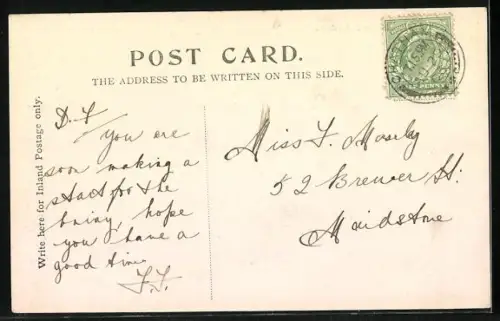 POST CARD.
THE ADDRESS TO BE WRITTEN ON THIS SIDE.
Write here for Inland Postage only.
D. F
You are
soon making a
start for the
briny, hope
you have a
good time
F.F.
Miss F.
52 Brewer St:
Maidstone